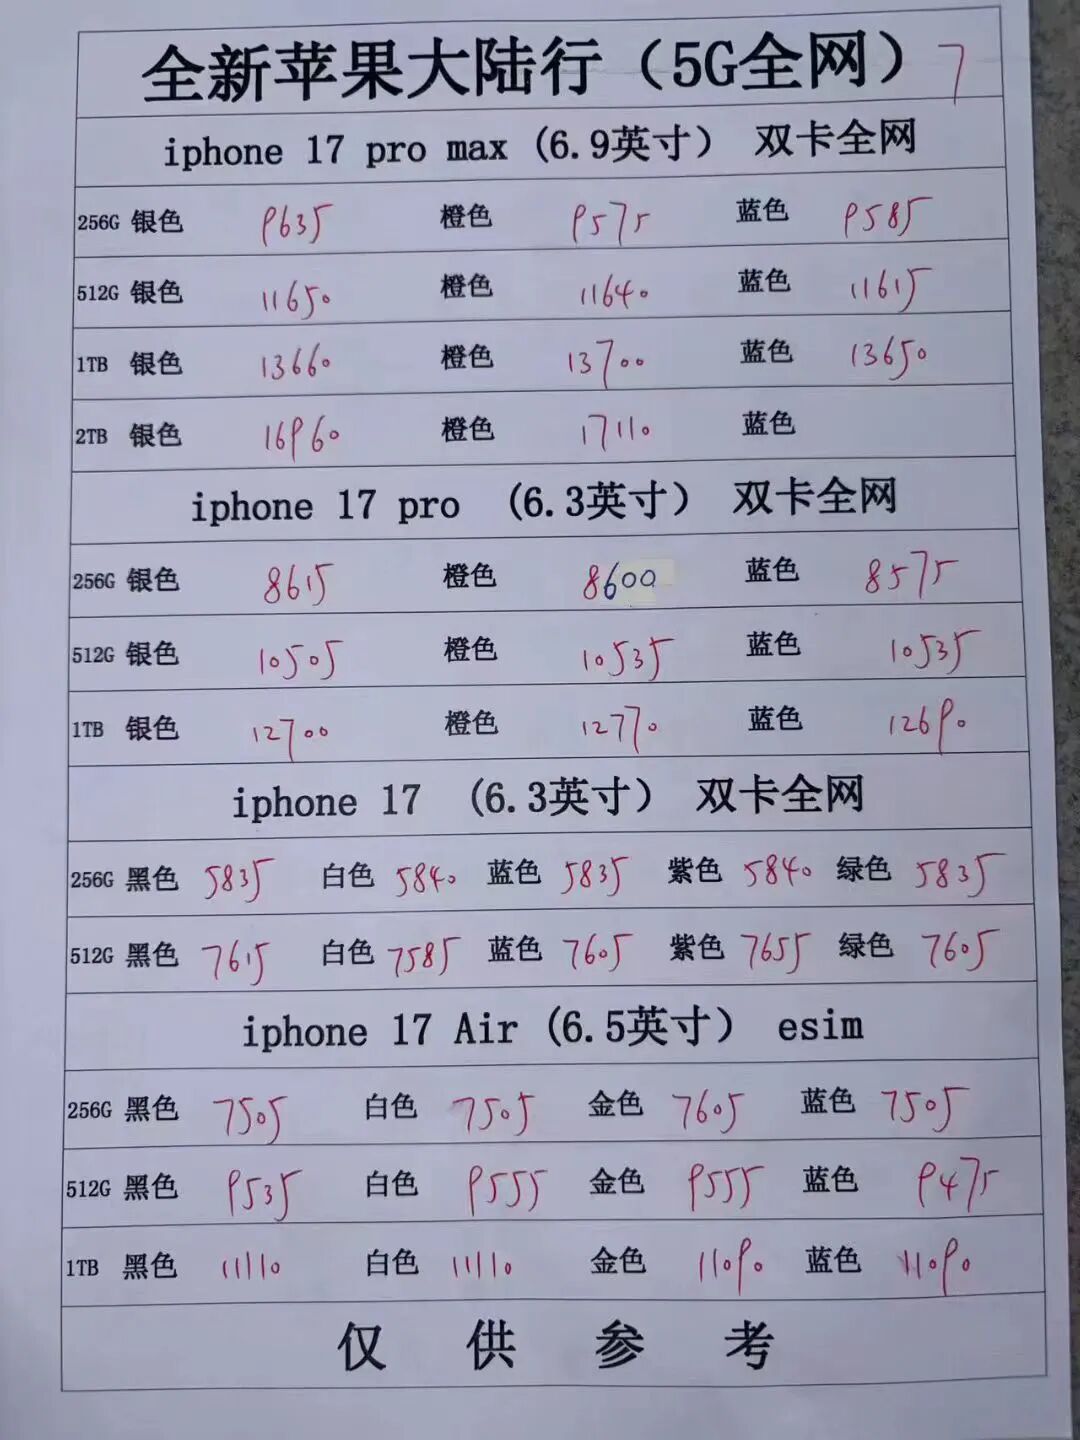 全新苹果大陆行（5G全网） 7
iphone 17 pro max (6.9英寸） 双卡全网
256G 银色 9635 橙色 9575 蓝色 9585
512G 银色 11650 橙色 11640 蓝色 11615
1TB 银色 13660 橙色 13700 蓝色 13650
2TB 银色 16960 橙色 17110 蓝色
iphone 17 pro (6.3英寸） 双卡全网
256G 银色 8615 橙色 8600 蓝色 8575
512G 银色 10505 橙色 10535 蓝色 10535
1TB 银色 12700 橙色 12770 蓝色 12690
iphone 17 (6.3英寸） 双卡全网
256G 黑色 5835 白色 5840 蓝色 5835 紫色 5840 绿色 5835
512G 黑色 7615 白色 7585 蓝色 7605 紫色 7655 绿色 7605
iphone 17 Air (6.5英寸） esim
256G 黑色 7505 白色 7505 金色 7605 蓝色 7505
512G 黑色 9535 白色 9555 金色 9555 蓝色 9475
1TB 黑色 11110 白色 11110 金色 11090 蓝色 11090
仅供参考